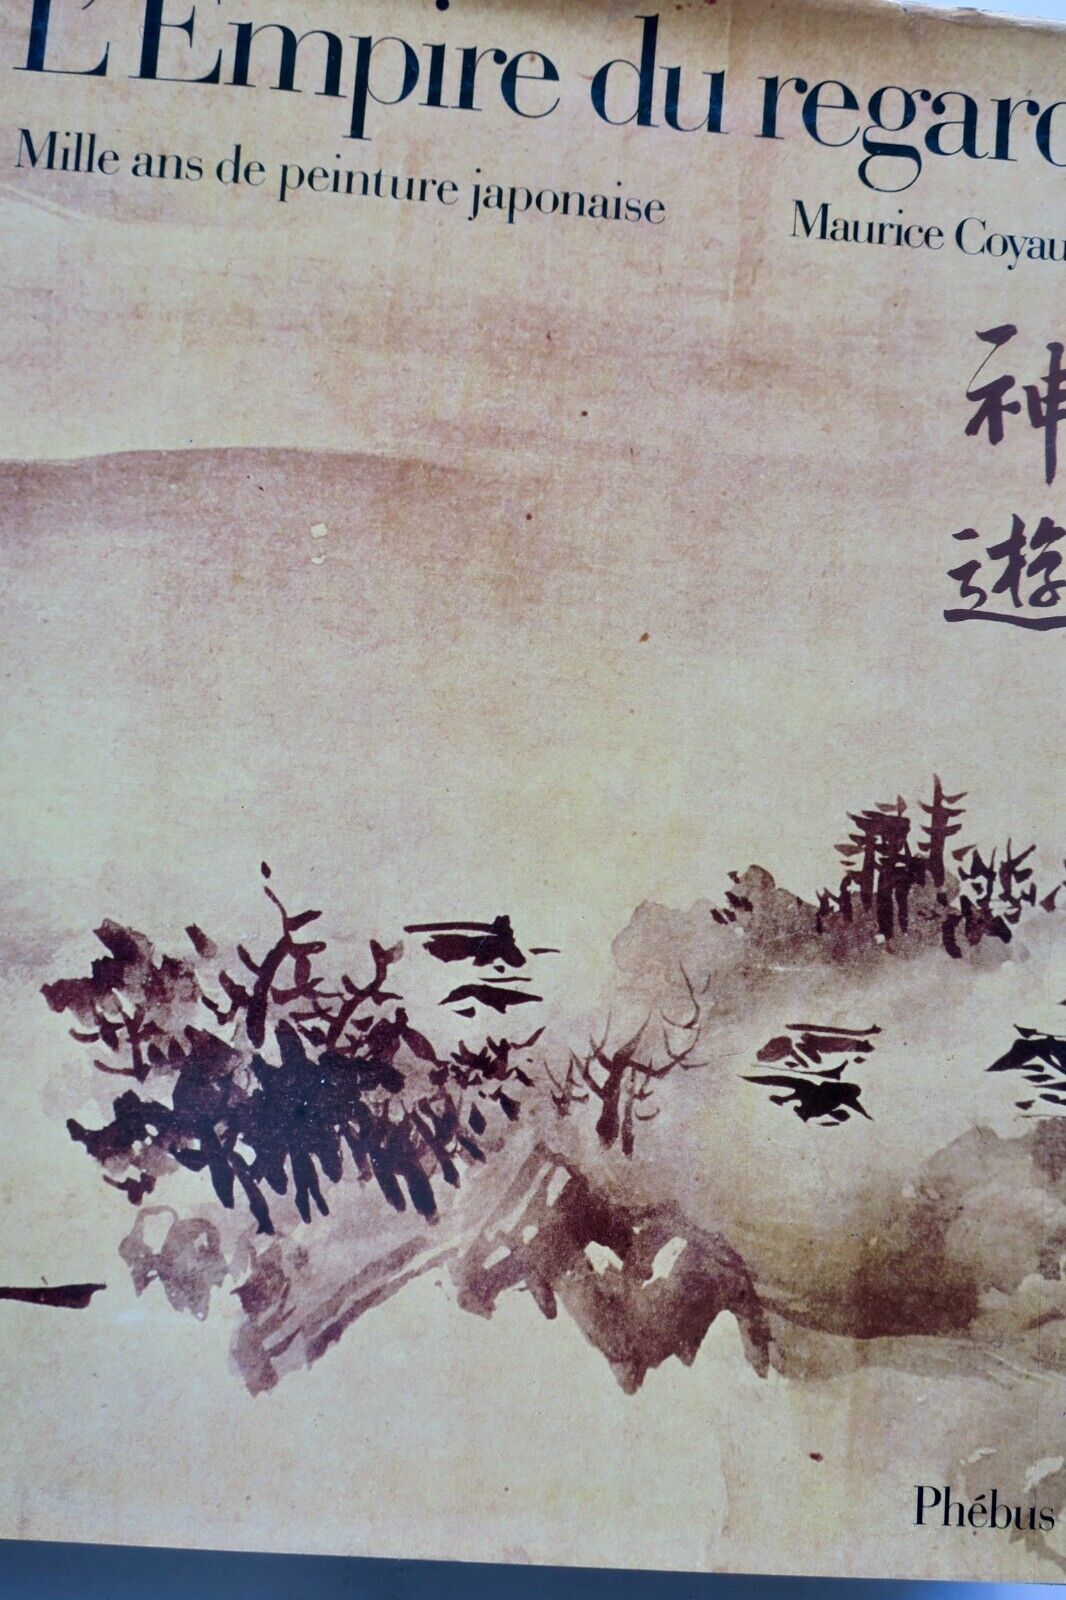 L'Empire du regard
Mille ans de peinture japonaise
Maurice Coyau
神
遊
Phébus